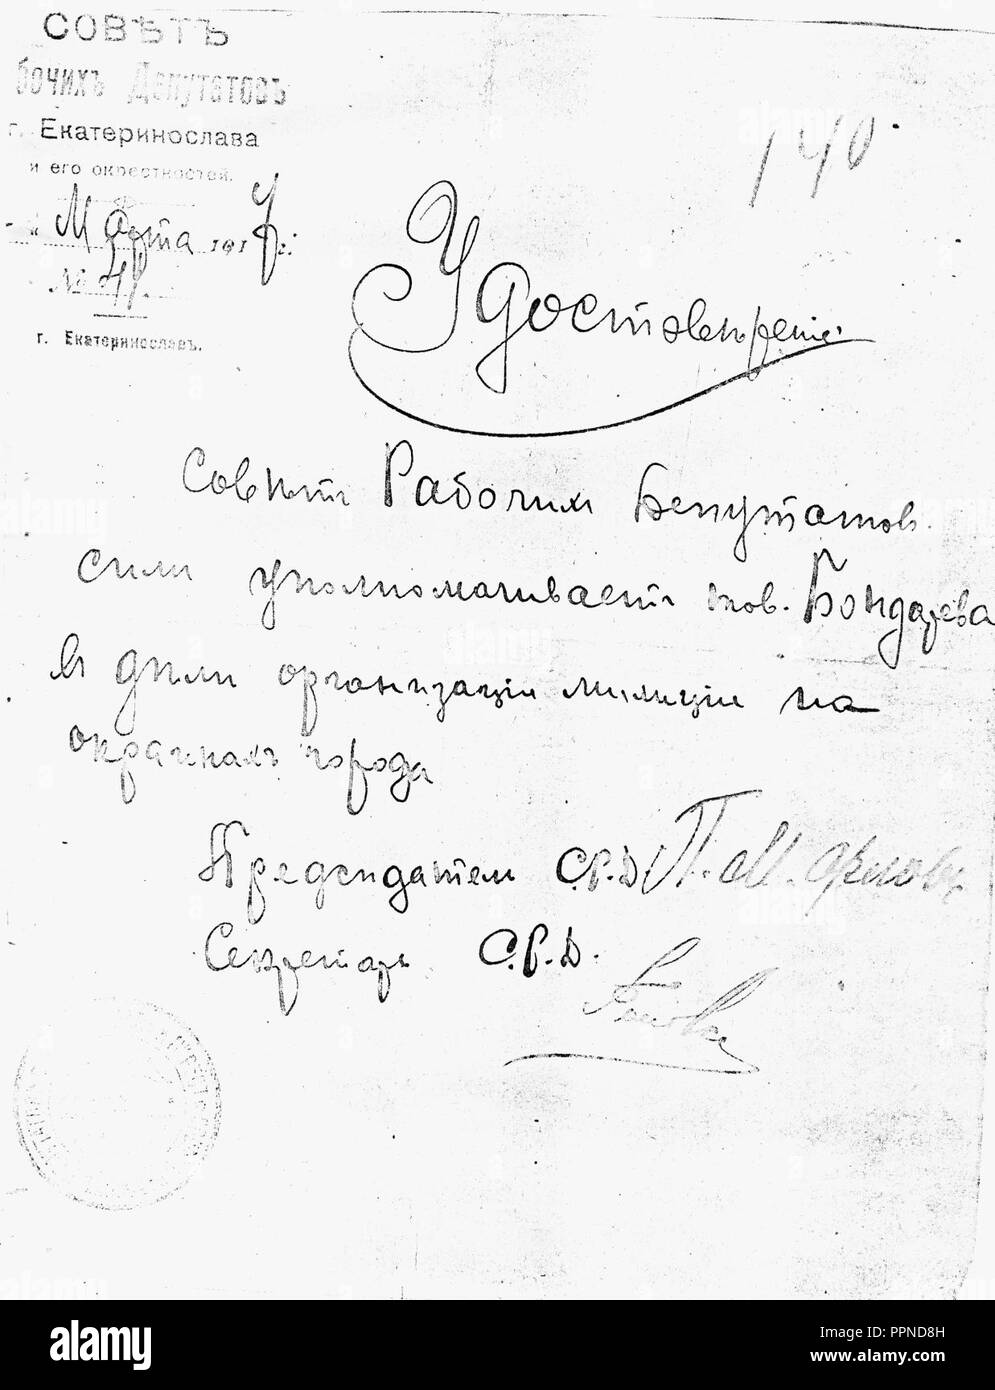 СОВѢТЪ
бочихъ Депутатовъ
г. Екатеринослава
и его окрестностей.
" Марта 1917 г.
№
г. Екатеринославъ.
140
Удостовѣреніе
Совѣтъ Рабочихъ Депутатов
симъ уполномачиваетъ тов. Бондарева
въ дѣлѣ организаціи милиціи на
окраинахъ города
Председатель С.Р.Д.
Секретарь С.Р.Д.
alamy
Image ID: PPND8H
www.alamy.com